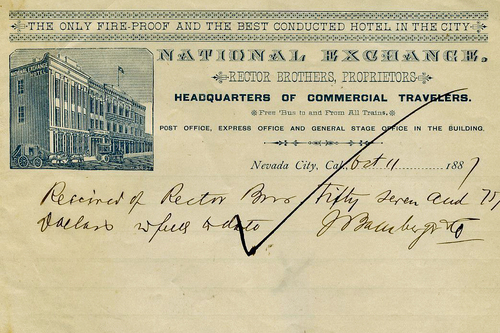 THE ONLY FIRE-PROOF AND THE BEST CONDUCTED HOTEL IN THE CITY
NATIONAL EXCHANGE HOTEL
NATIONAL EXCHANGE,
RECTOR BROTHERS, PROPRIETORS
HEADQUARTERS OF COMMERCIAL TRAVELERS.
Free 'Bus to and From All Trains.
POST OFFICE, EXPRESS OFFICE AND GENERAL STAGE OFFICE IN THE BUILDING.
Nevada City, Cal. Oct 11 1887
Received of Rector Bros Fifty seven and
Dollars in full to date